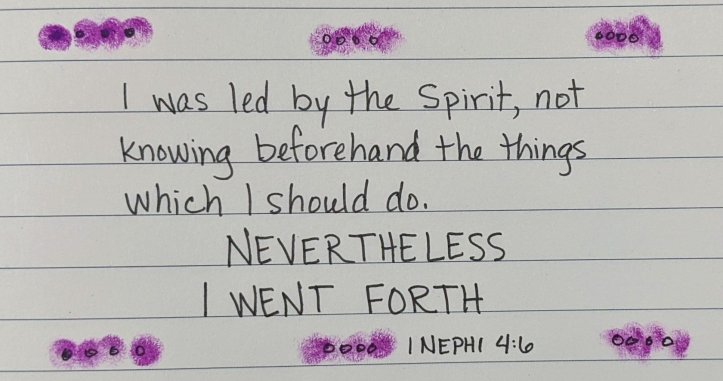 I was led by the Spirit, not
knowing beforehand the things
which I should do.
NEVERTHELESS
I WENT FORTH
1 NEPHI 4:6